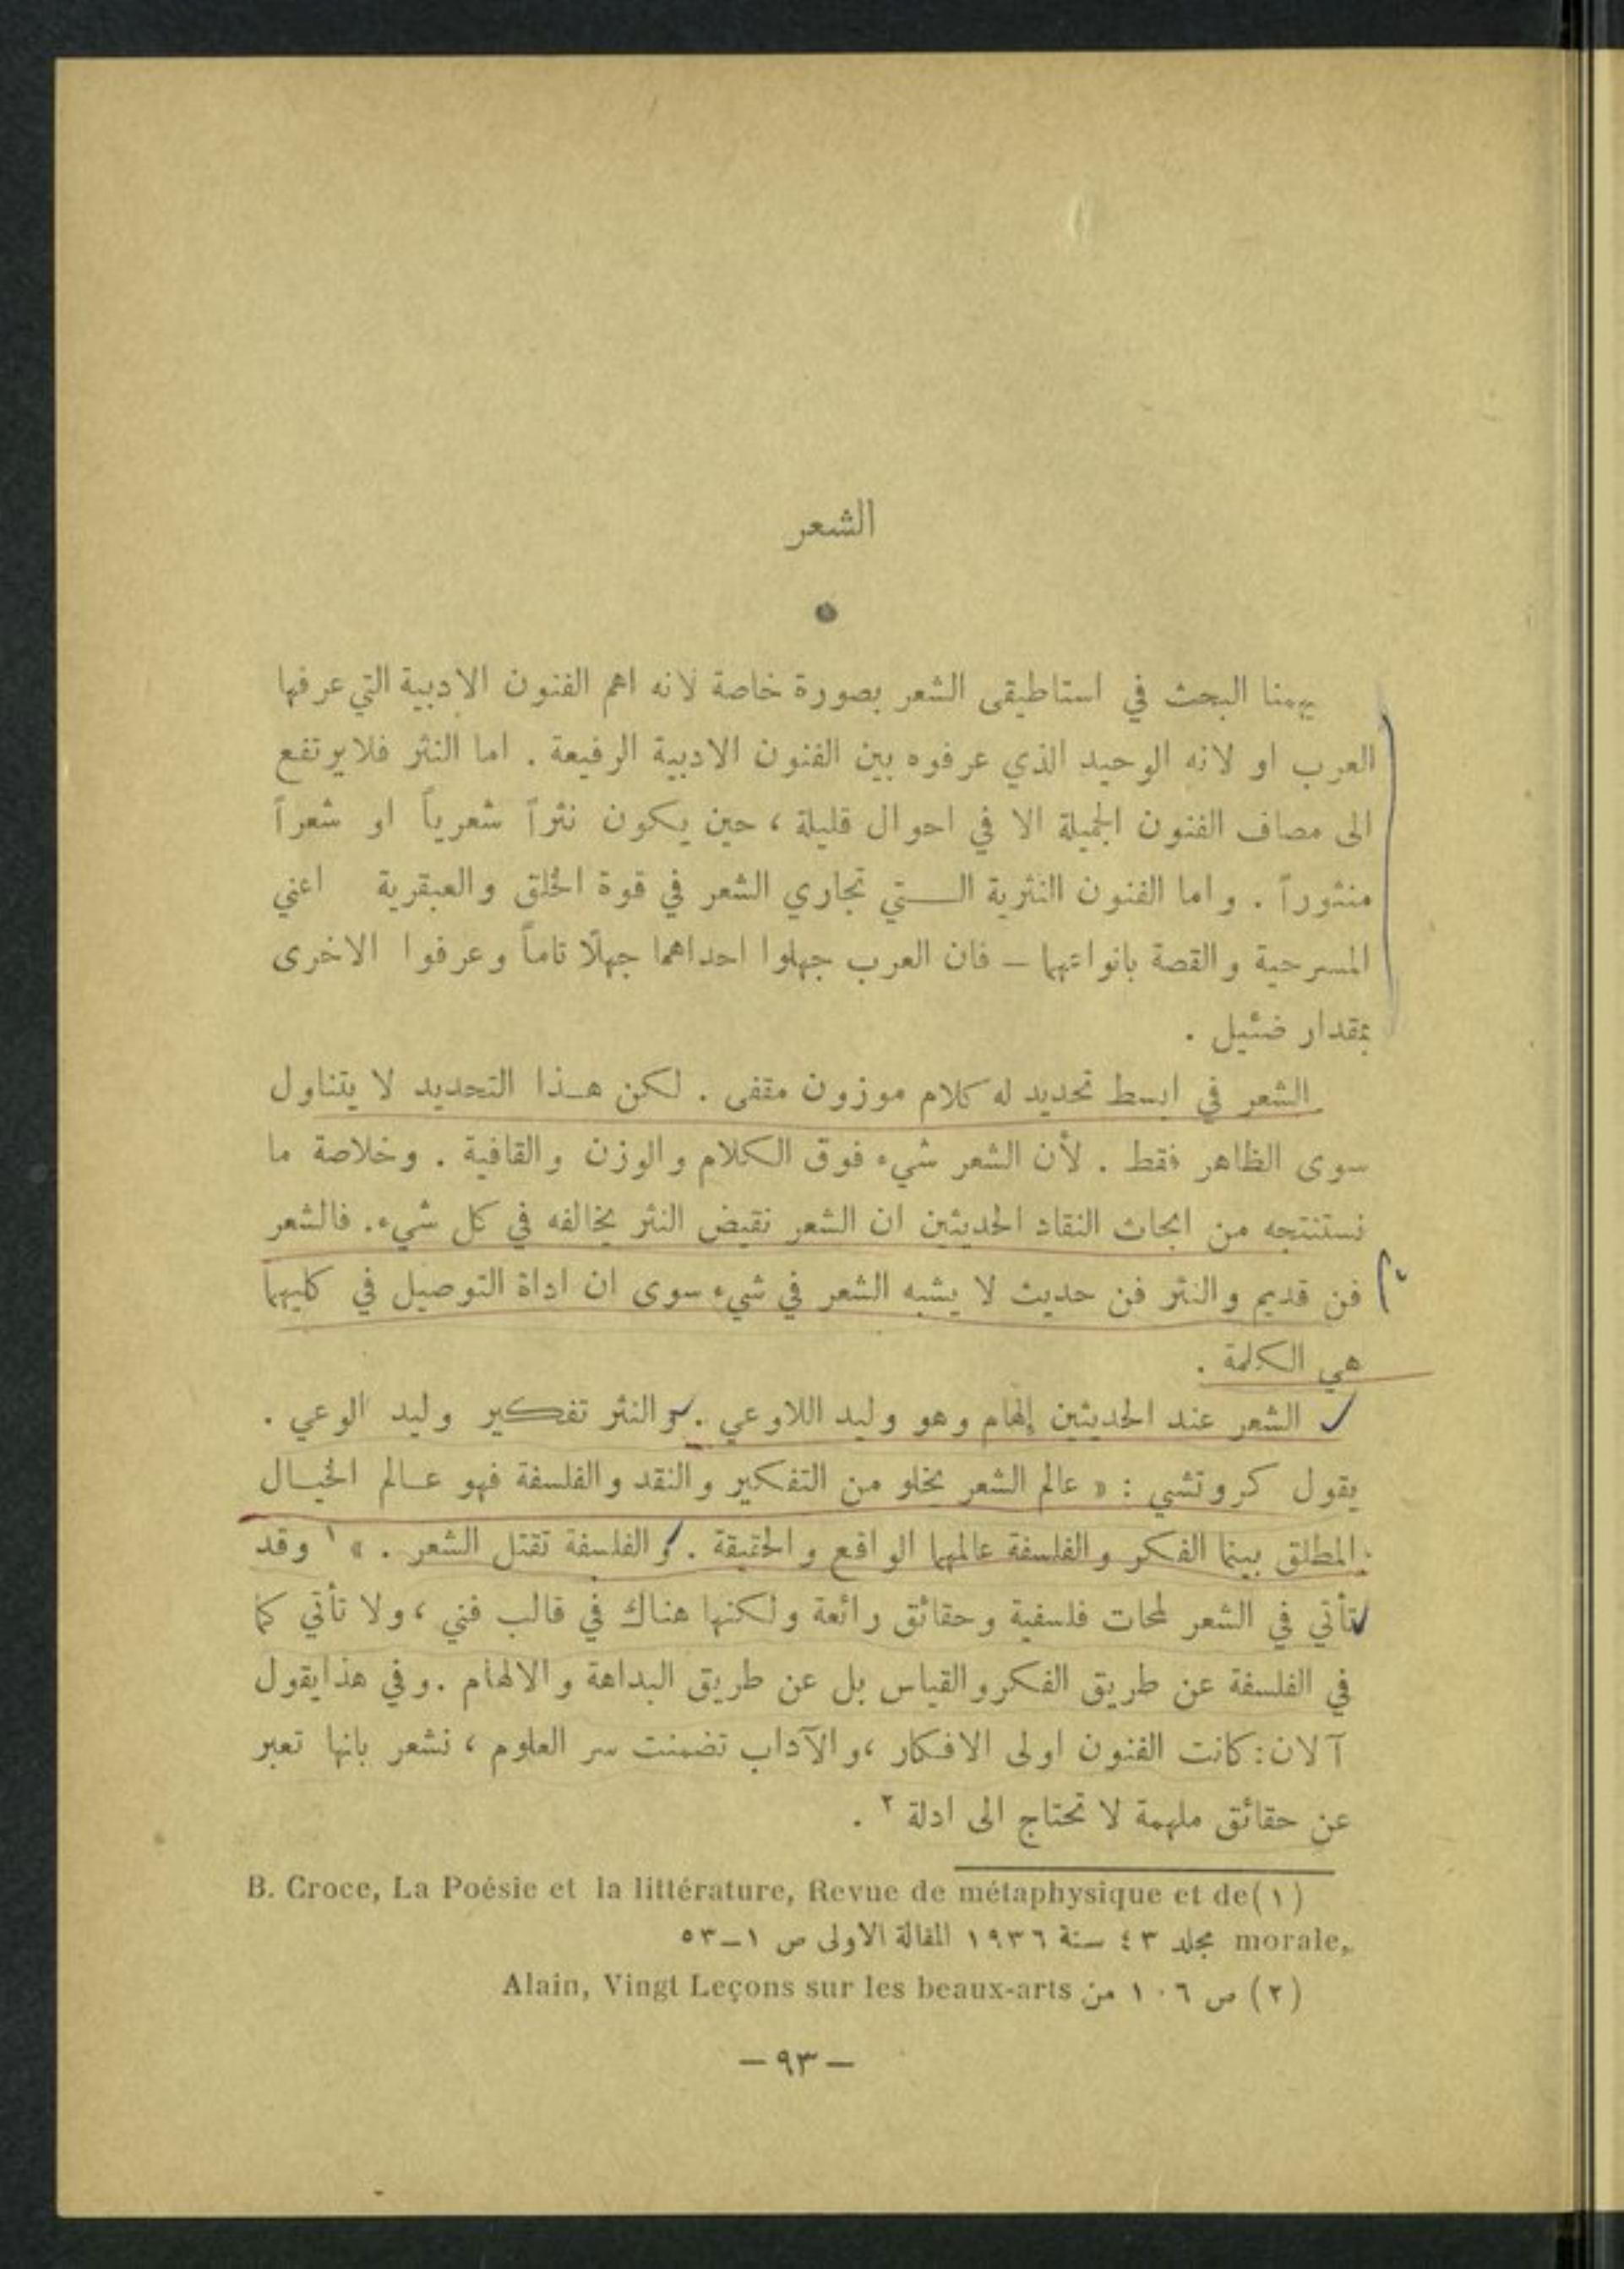 الشعر
يهمنا البحث في استاطيقى الشعر بصورة خاصة لانه اهم الفنون الادبية التي عرفها
العرب او لانه الوحيد الذي عرفوه بين الفنون الادبية الرفيعة . اما النثر فلا يرتفع
الى مصاف الفنون الجميلة الا في احوال قليلة ، حين يكون نثراً شعرياً او شعراً
منثوراً . واما الفنون النثرية الـتي تجاري الشعر في قوة الخلق والعبقرية اعني
المسرحية والقصة بانواعهما – فان العرب جهلوا احداهما جهلًا تاماً وعرفوا الاخرى
بمقدار ضئيل .
الشعر في ابسط تحديد له كلام موزون مقفى . لكن هـذا التحديد لا يتناول
سوى الظاهر فقط . لأن الشعر شيء فوق الكلام والوزن والقافية . وخلاصة ما
نستنتجه من ابحاث النقاد الحديثين ان الشعر نقيض النثر يخالفه في كل شيء. فالشعر
فن قديم والنثر فن حديث لا يشبه الشعر في شيء سوى ان اداة التوصيل في كليهما
هي الكلمة .
الشعر عند الحديثين إلهام وهو وليد اللاوعي . والنثر تفكير وليد الوعي .
يقول كروتشي : « عالم الشعر يخلو من التفكير والنقد والفلسفة فهو عـالم الخيـال
المطلق بينما الفكر والفلسفة عالمهما الواقع والحقيقة . والفلسفة تقتل الشعر . » ١ وقد
تأتي في الشعر لمحات فلسفية وحقائق رائعة ولكنها هناك في قالب فني ، ولا تأتي كما
في الفلسفة عن طريق الفكر والقياس بل عن طريق البداهة والالهام . وفي هذا يقول
آلان : كانت الفنون اولى الافكار ، والآداب تضمنت سر العلوم ، نشعر بانها تعبر
عن حقائق ملهمة لا تحتاج الى ادلة ٢ .
(١) B. Croce, La Poésie et la littérature, Revue de métaphysique et de
morale, مجلد ٤٣ سنة ١٩٣٦ المقالة الاولى ص ١–٥٣
(٢) ص ١٠٦ من Alain, Vingt Leçons sur les beaux-arts
– ٩٣ –